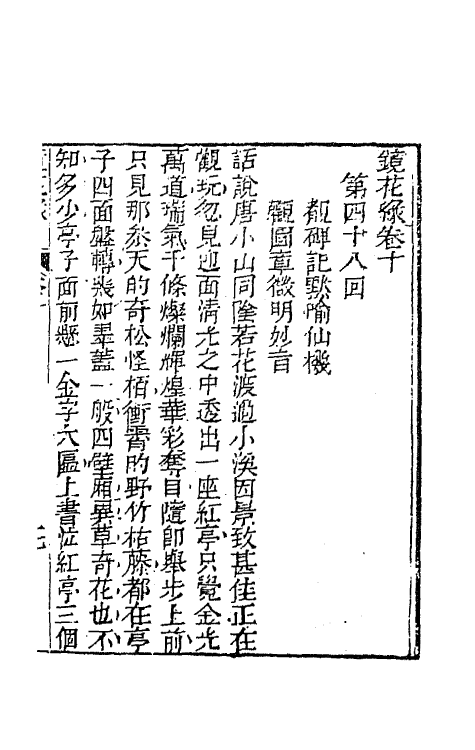 鏡花緣卷十
第四十八回
覩碑記默喻仙機
觀圖章微明妙旨
話說唐小山同陰若花渡過小溪因景致甚佳正在
觀玩忽見迎面清光之中透出一座紅亭只覺金光
萬道瑞氣千條燦爛輝煌華彩奪目隨即舉步上前
只見那叅天的奇松怪栢衝霄的野竹枯藤都在亭
子四面盤轉裝如翠蓋一般四壁廂異草奇花也不
知多少亭子面前懸一金字大匾上書泣紅亭三個